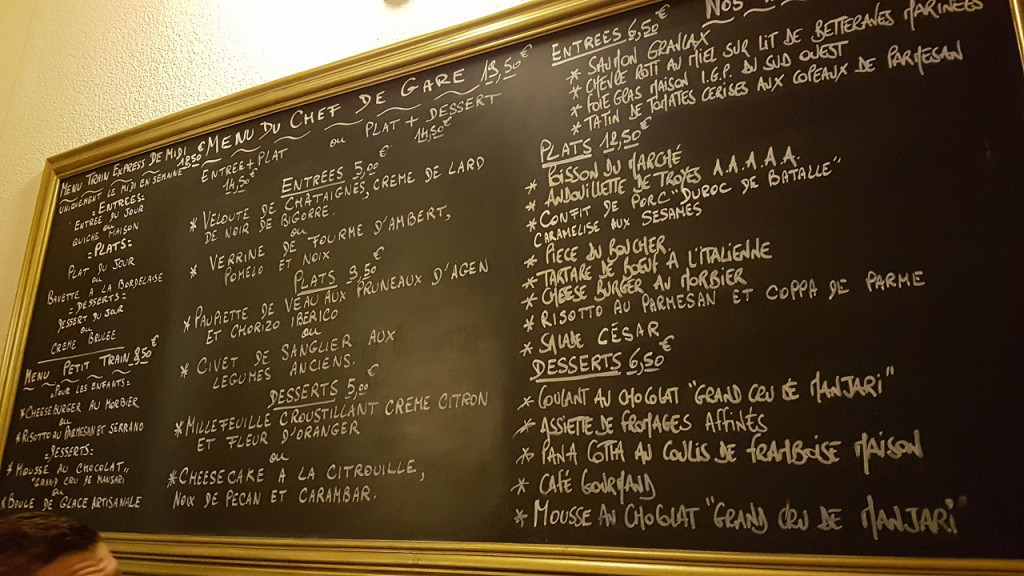 MENU TRAIN EXPRESS DE MIDI 12,50€
UNIQUEMENT LE MIDI EN SEMAINE
= ENTREES=
ENTREE DU JOUR
ou
QUICHE MAISON
= PLATS=
PLAT DU JOUR
ou
BAVETTE A LA BORDELAISE
= DESSERTS =
DESSERT DU JOUR
ou
CREME BRULEE
MENU PETIT TRAIN 8,50€
POUR LES ENFANTS=
*CHEESEBURGER AU MORBIER
ou
*RISOTTO AU PARMESAN ET SERRANO
=DESSERTS:
*MOUSSE AU CHOCOLAT
"GRAND CRU DE MANJARI
ou
*BOULE DE GLACE ARTISANALE
MENU DU CHEF DE GARE 19,50€
ENTREE+PLAT ou PLAT + DESSERT
14,50€ 14,50€
ENTREES 5,00€
* VELOUTE DE CHATAIGNES, CREME DE LARD
DE NOIR DE BIGORRE.
ou
* VERRINE DE FOURME D'AMBERT,
POMELO ET NOIX
PLATS 9,50€
* PAUPIETTE DE VEAU AUX PRUNEAUX D'AGEN
ET CHORIZO IBERICO
ou
* CIVET DE SANGLIER AUX
LEGUMES ANCIENS.
DESSERTS 5,00€
*MILLEFEUILLE CROUSTILLANT CREME CITRON
ET FLEUR D'ORANGER
ou
*CHEESECAKE A LA CITROUILLE,
NOIX DE PECAN ET CARAMBAR.
NOS
ENTREES 6,50€
* SAUMON GRAVLAX
* CHEVRE ROTI AU MIEL SUR LIT DE BETTERAVES MARINEES
* FOIE GRAS MAISON I.G.P. DU SUD OUEST
* TATIN DE TOMATES CERISES AUX COPEAUX DE PARMESAN
PLATS 12,50€
* POISSON DU MARCHÉ
* ANDOUILLETTE DE TROYES A.A.A.A.A.
* CONFIT DE PORC "DUROC DE BATALLE"
CARAMELISE AUX SESAMES
* PIECE DU BOUCHER
* TARTARE DE BOEUF A L'ITALIENNE
* CHEESE BURGER AU MORBIER
* RISOTTO AU PARMESAN ET COPPA DE PARME
* SALADE CÉSAR
DESSERTS 6,50€
* COULANT AU CHOCOLAT "GRAND CRU DE MANJARI"
* ASSIETTE DE FROMAGES AFFINÉS
* PANA COTTA AU COULIS DE FRAMBOISE MAISON
* CAFÉ GOURMAND
* MOUSSE AU CHOCOLAT "GRAND CRU DE MANJARI"